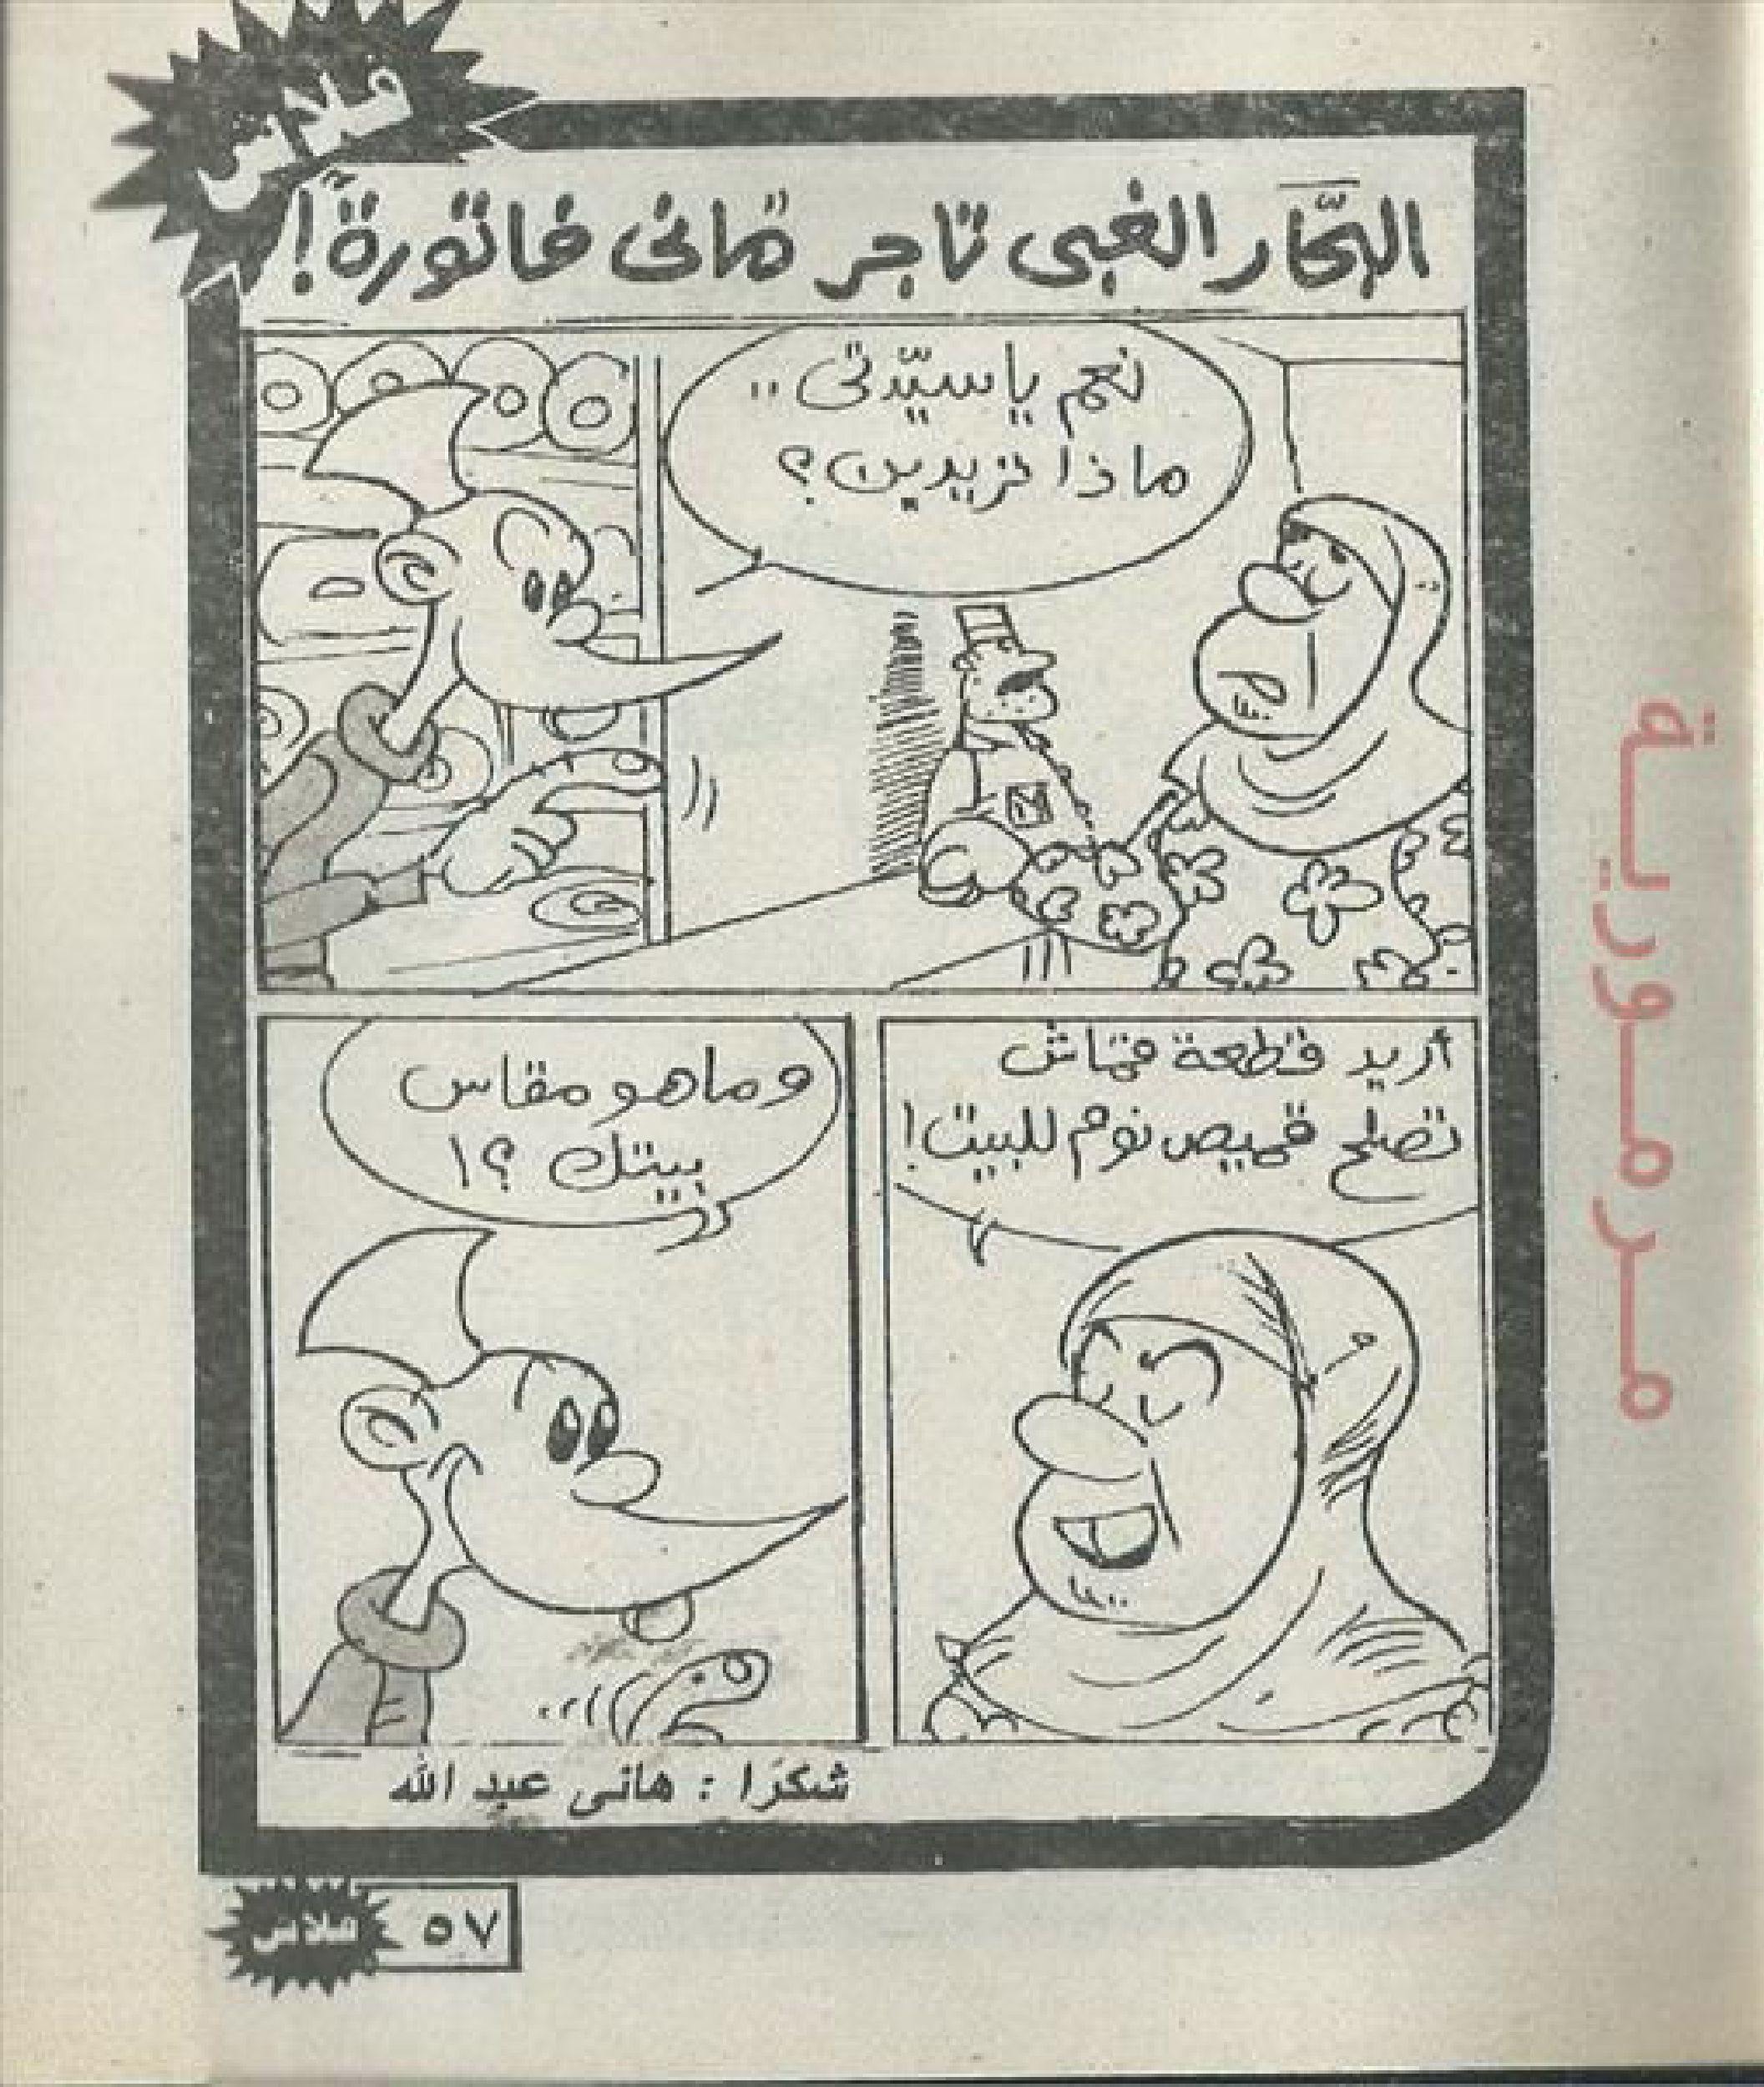 فلاش
البحّار الغبى تاجر مانى فاتورة!
نعم يا سيّدتى ..
ماذا تريدين؟
أريد قطعة قماش
تصلح قميص نوم للبيت!
وماهو مقاس
بيتك ؟!
شكرًا : هانى عبد الله
٥٧
فلاش
مرمورية